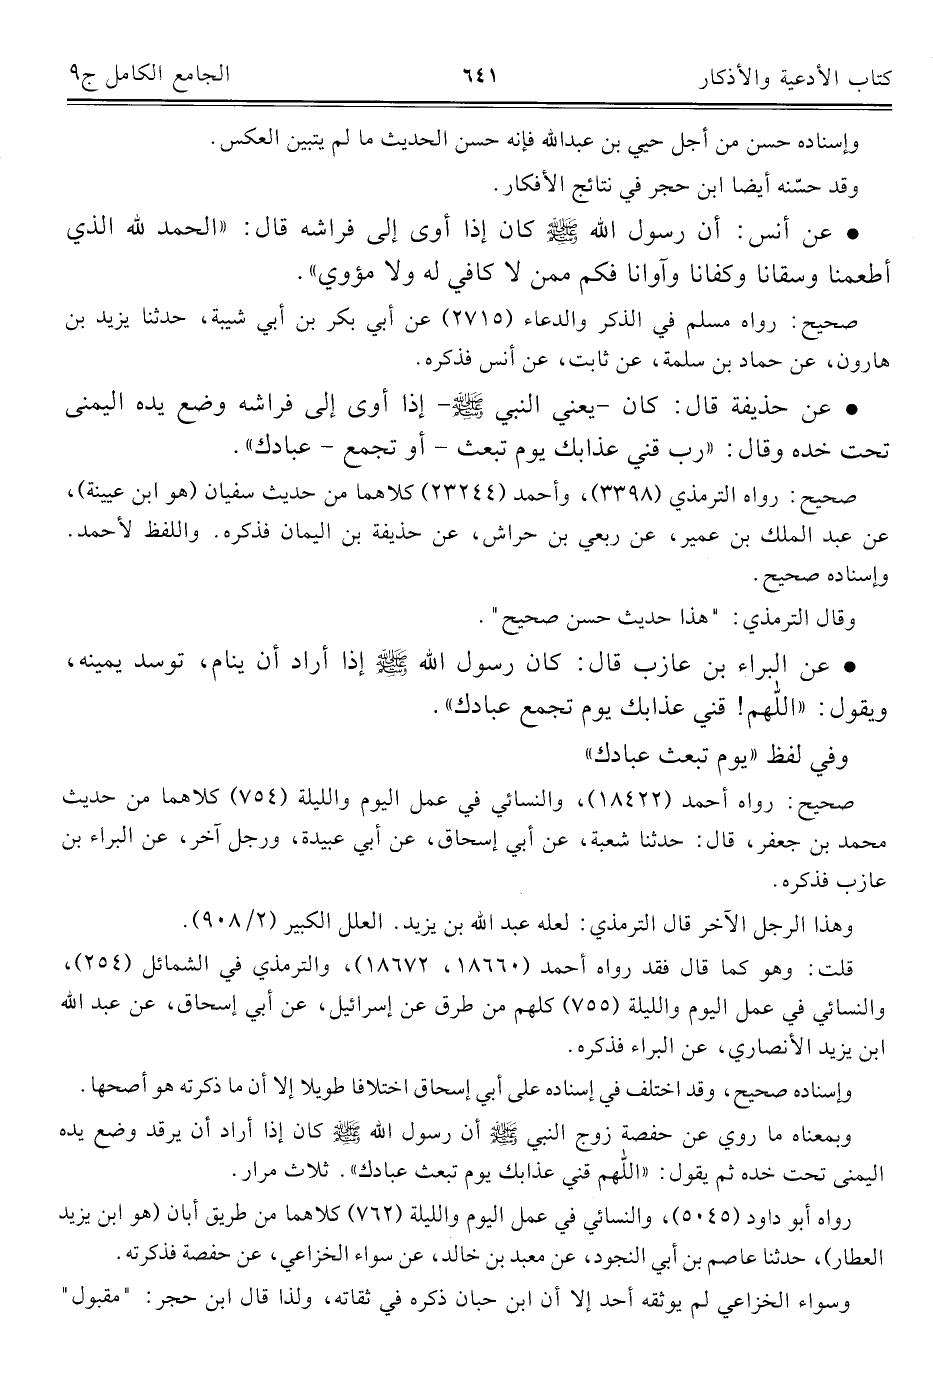 كتاب الأدعية والأذكار ٦٤١ الجامع الكامل ج٩
وإسناده حسن من أجل حيي بن عبدالله فإنه حسن الحديث ما لم يتبين العكس.
وقد حسّنه أيضا ابن حجر في نتائج الأفكار.
• عن أنس: أن رسول الله ﷺ كان إذا أوى إلى فراشه قال: «الحمد لله الذي
أطعمنا وسقانا وكفانا وآوانا فكم ممن لا كافي له ولا مؤوي».
صحيح: رواه مسلم في الذكر والدعاء (٢٧١٥) عن أبي بكر بن أبي شيبة، حدثنا يزيد بن
هارون، عن حماد بن سلمة، عن ثابت، عن أنس فذكره.
• عن حذيفة قال: كان -يعني النبي ﷺ- إذا أوى إلى فراشه وضع يده اليمنى
تحت خده وقال: «رب قني عذابك يوم تبعث - أو تجمع - عبادك».
صحيح: رواه الترمذي (٣٣٩٨)، وأحمد (٢٣٢٤٤) كلاهما من حديث سفيان (هو ابن عيينة)،
عن عبد الملك بن عمير، عن ربعي بن حراش، عن حذيفة بن اليمان فذكره. واللفظ لأحمد.
وإسناده صحيح.
وقال الترمذي: "هذا حديث حسن صحيح".
• عن البراء بن عازب قال: كان رسول الله ﷺ إذا أراد أن ينام، توسد يمينه،
ويقول: «اللّٰهم! قني عذابك يوم تجمع عبادك».
وفي لفظ «يوم تبعث عبادك»
صحيح: رواه أحمد (١٨٤٢٢)، والنسائي في عمل اليوم والليلة (٧٥٤) كلاهما من حديث
محمد بن جعفر، قال: حدثنا شعبة، عن أبي إسحاق، عن أبي عبيدة، ورجل آخر، عن البراء بن
عازب فذكره.
وهذا الرجل الآخر قال الترمذي: لعله عبد الله بن يزيد. العلل الكبير (٩٠٨/٢).
قلت: وهو كما قال فقد رواه أحمد (١٨٦٦٠، ١٨٦٧٢)، والترمذي في الشمائل (٢٥٤)،
والنسائي في عمل اليوم والليلة (٧٥٥) كلهم من طرق عن إسرائيل، عن أبي إسحاق، عن عبد الله
ابن يزيد الأنصاري، عن البراء فذكره.
وإسناده صحيح، وقد اختلف في إسناده على أبي إسحاق اختلافا طويلا إلا أن ما ذكرته هو أصحها.
وبمعناه ما روي عن حفصة زوج النبي ﷺ أن رسول الله ﷺ كان إذا أراد أن يرقد وضع يده
اليمنى تحت خده ثم يقول: «اللّٰهم قني عذابك يوم تبعث عبادك». ثلاث مرار.
رواه أبو داود (٥٠٤٥)، والنسائي في عمل اليوم والليلة (٧٦٢) كلاهما من طريق أبان (هو ابن يزيد
العطار)، حدثنا عاصم بن أبي النجود، عن معبد بن خالد، عن سواء الخزاعي، عن حفصة فذكرته.
وسواء الخزاعي لم يوثقه أحد إلا أن ابن حبان ذكره في ثقاته، ولذا قال ابن حجر: "مقبول"